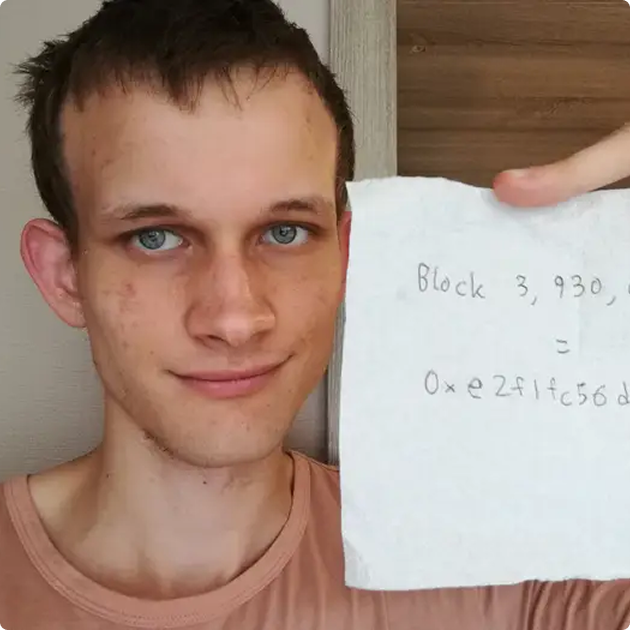 Block 3, 930,
=
0xe2f1fc56d